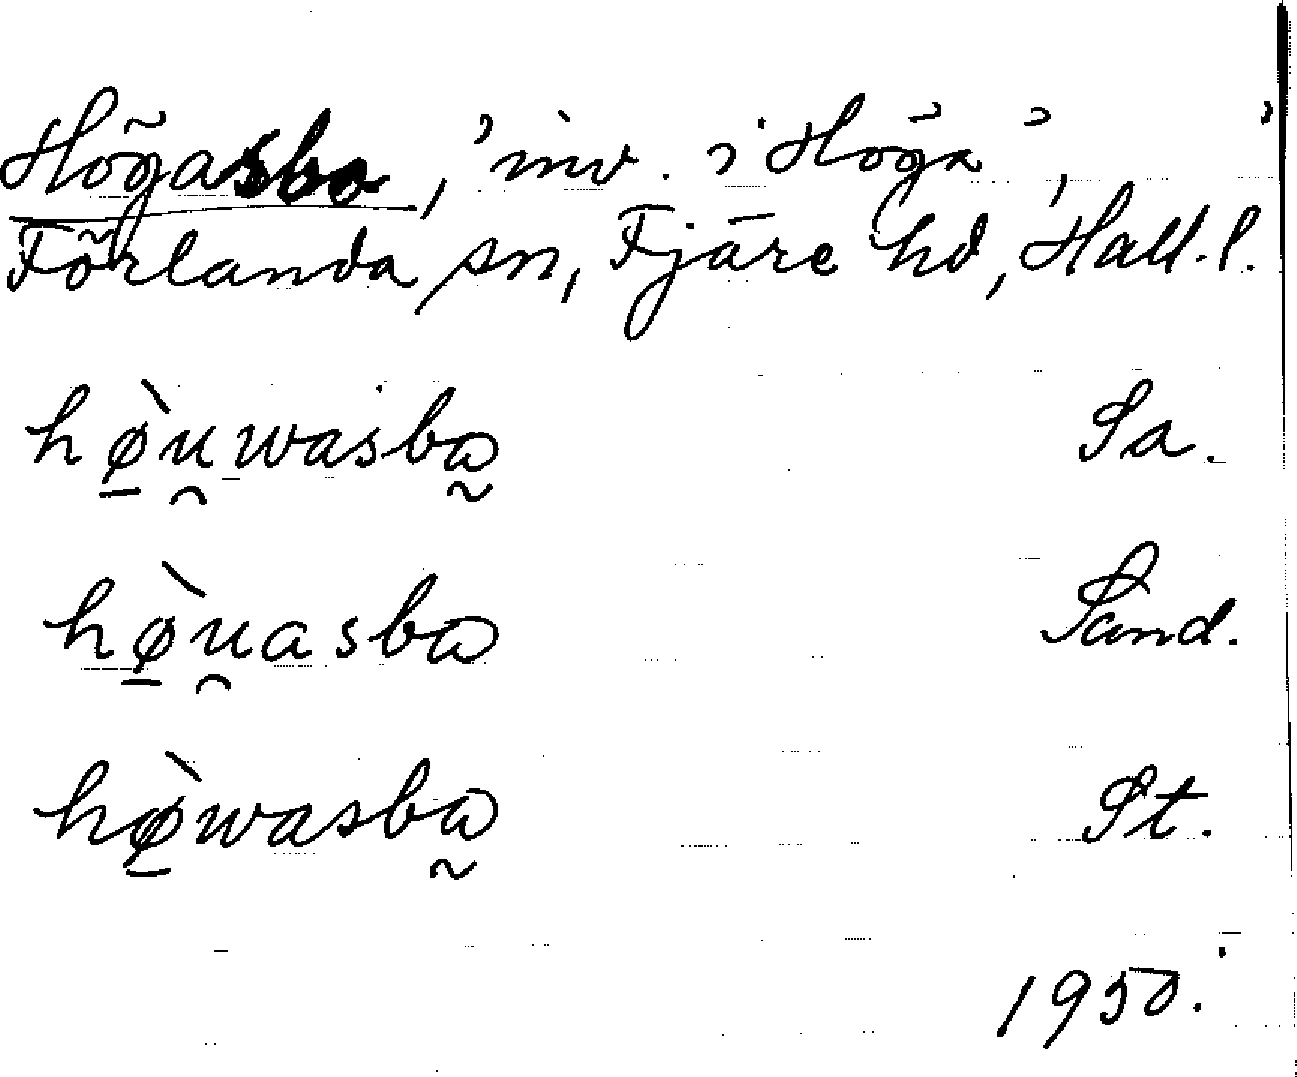 Högasbo, 'inv. i Höga',
Förlanda sn, Fjäre hd, Hall. l.
hø̱̀u̯wasbω̰ Sa.
hø̱̀u̯asbω Sand.
hø̱̀wasbω̰ St.
1950.